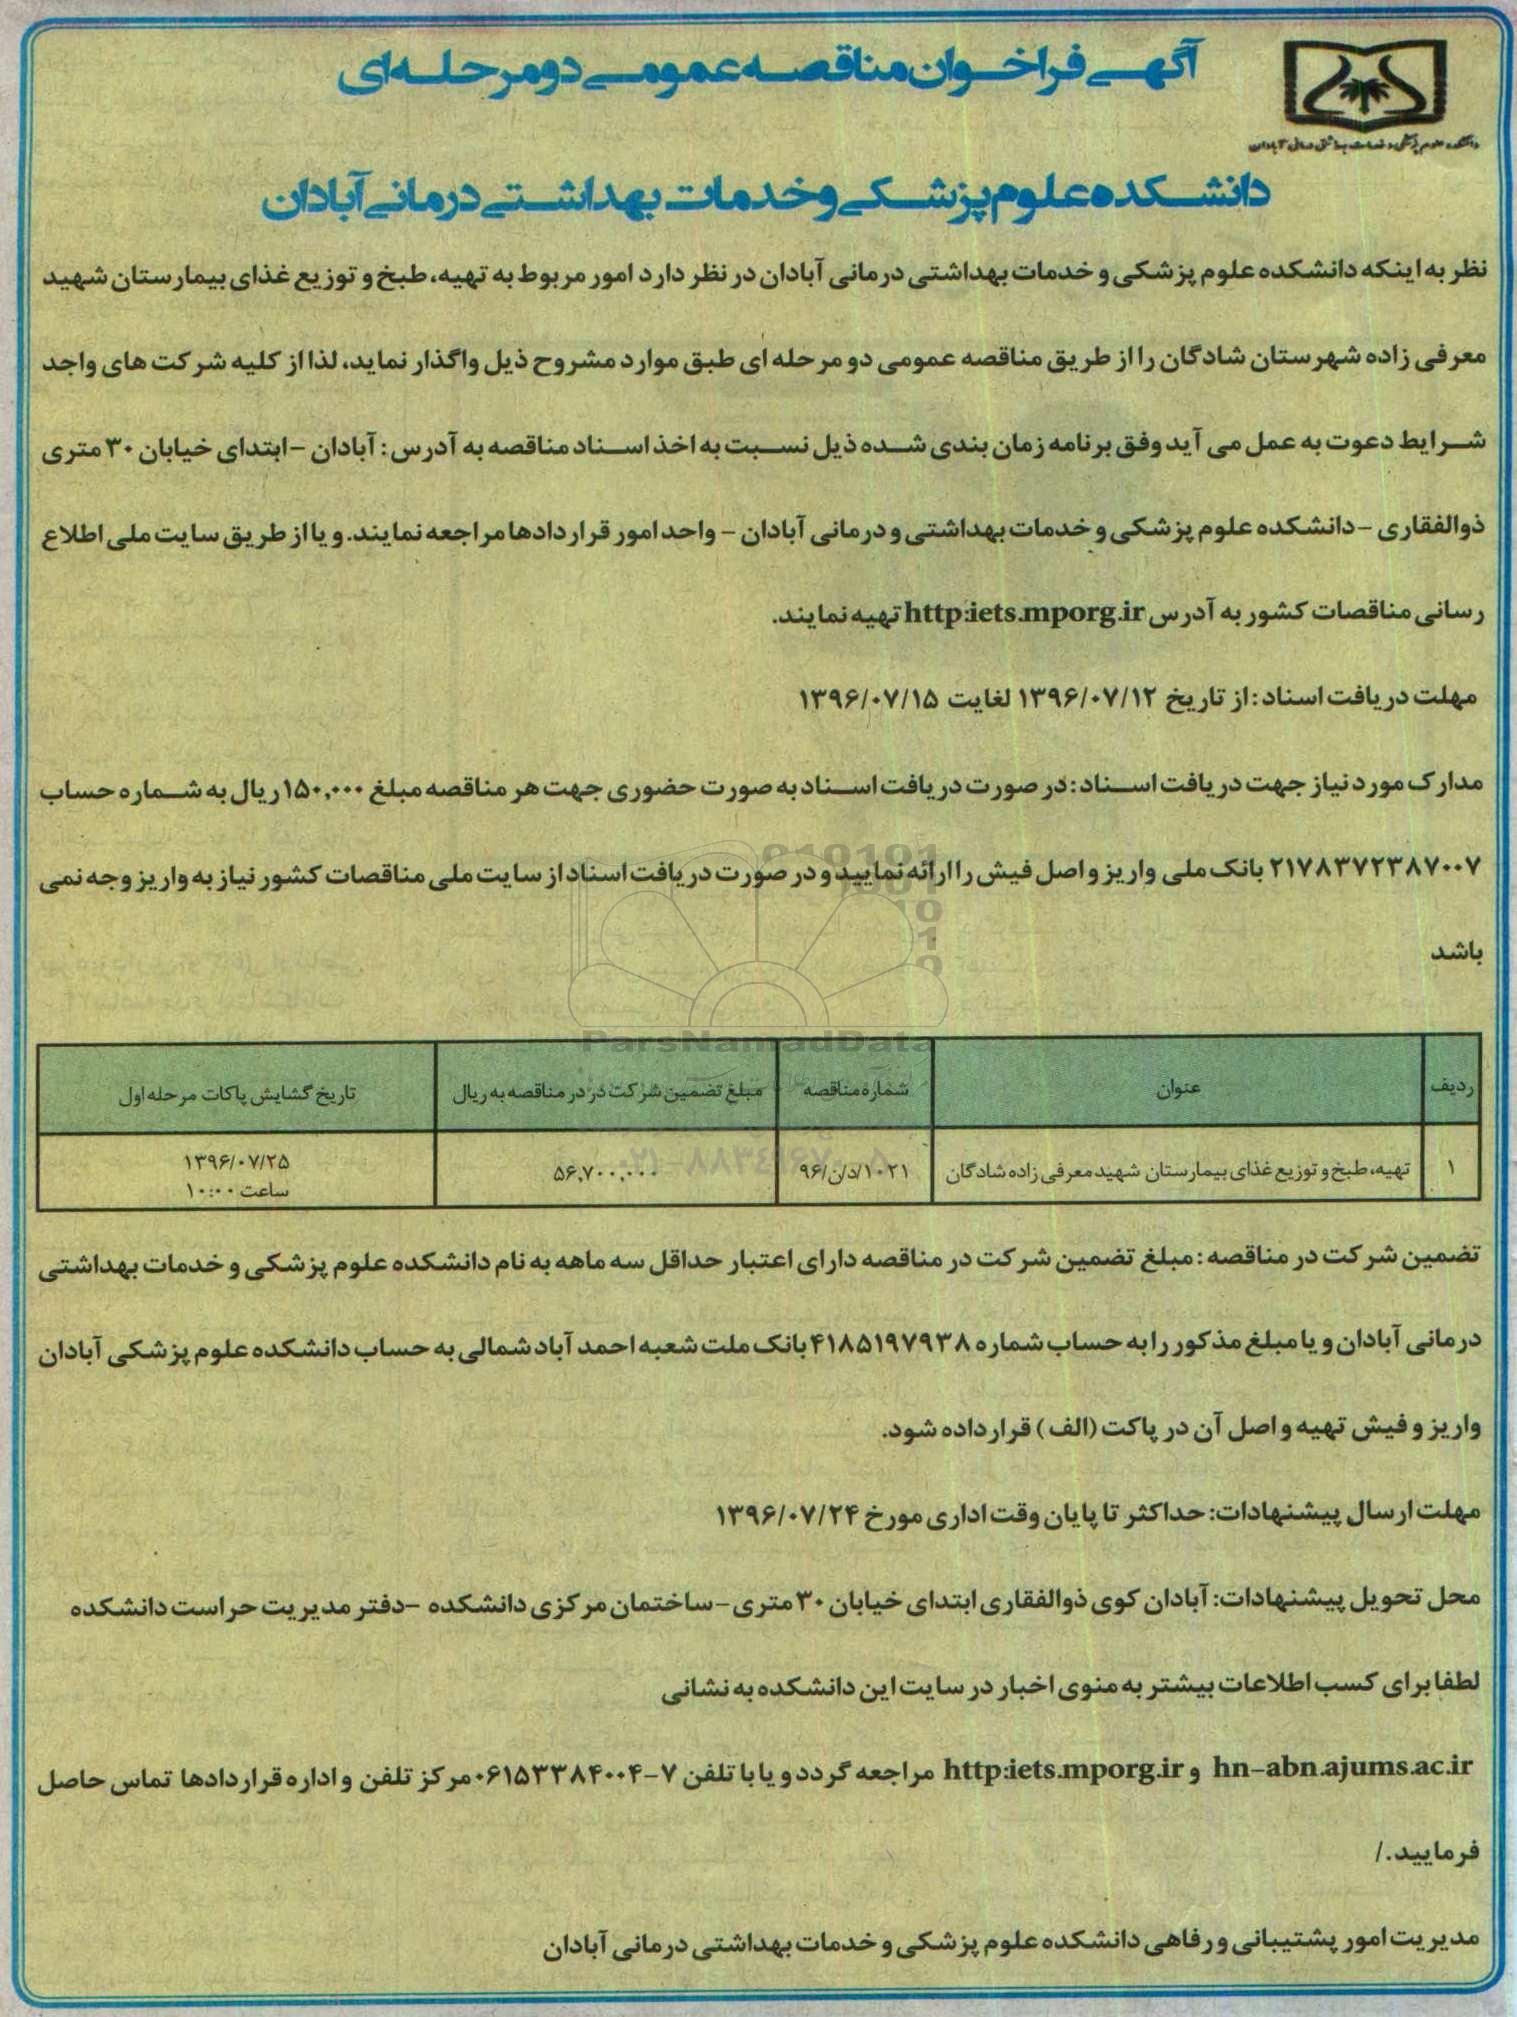 آگهی فراخوان مناقصه عمومی دو مرحله ای
دانشکده علوم پزشکی و خدمات بهداشتی درمانی آبادان
دانشکده علوم پزشکی و خدمات بهداشتی درمانی آبادان
نظر به اینکه دانشکده علوم پزشکی و خدمات بهداشتی درمانی آبادان در نظر دارد امور مربوط به تهیه، طبخ و توزیع غذای بیمارستان شهید
معرفی زاده شهرستان شادگان را از طریق مناقصه عمومی دو مرحله ای طبق موارد مشروح ذیل واگذار نماید، لذا از کلیه شرکت های واجد
شرایط دعوت به عمل می آید وفق برنامه زمان بندی شده ذیل نسبت به اخذ اسناد مناقصه به آدرس : آبادان - ابتدای خیابان ۳۰ متری
ذوالفقاری - دانشکده علوم پزشکی و خدمات بهداشتی و درمانی آبادان - واحد امور قراردادها مراجعه نمایند. و یا از طریق سایت ملی اطلاع
رسانی مناقصات کشور به آدرس http:iets.mporg.ir تهیه نمایند.
مهلت دریافت اسناد : از تاریخ ۱۳۹۶/۰۷/۱۲ لغایت ۱۳۹۶/۰۷/۱۵
مدارک مورد نیاز جهت دریافت اسناد : در صورت دریافت اسناد به صورت حضوری جهت هر مناقصه مبلغ ۱۵۰,۰۰۰ ریال به شماره حساب
۲۱۷۸۳۷۲۳۸۷۰۰۷ بانک ملی واریز و اصل فیش را ارائه نمایید و در صورت دریافت اسناد از سایت ملی مناقصات کشور نیاز به واریز وجه نمی
باشد
ParsNamadData
ردیف عنوان شماره مناقصه مبلغ تضمین شرکت در در مناقصه به ریال تاریخ گشایش پاکات مرحله اول
۱ تهیه، طبخ و توزیع غذای بیمارستان شهید معرفی زاده شادگان ۱۰۲۱/د/ن/۹۶ ۵۶,۷۰۰,۰۰۰ ۱۳۹۶/۰۷/۲۵
ساعت ۱۰:۰۰
تضمین شرکت در مناقصه : مبلغ تضمین شرکت در مناقصه دارای اعتبار حداقل سه ماهه به نام دانشکده علوم پزشکی و خدمات بهداشتی
درمانی آبادان و یا مبلغ مذکور را به حساب شماره ۴۱۸۵۱۹۷۹۳۸ بانک ملت شعبه احمد آباد شمالی به حساب دانشکده علوم پزشکی آبادان
واریز و فیش تهیه و اصل آن در پاکت (الف ) قرار داده شود.
مهلت ارسال پیشنهادات: حداکثر تا پایان وقت اداری مورخ ۱۳۹۶/۰۷/۲۴
محل تحویل پیشنهادات: آبادان کوی ذوالفقاری ابتدای خیابان ۳۰ متری - ساختمان مرکزی دانشکده - دفتر مدیریت حراست دانشکده
لطفا برای کسب اطلاعات بیشتر به منوی اخبار در سایت این دانشکده به نشانی
hn-abn.ajums.ac.ir و http:iets.mporg.ir مراجعه گردد و یا با تلفن ۷-۰۶۱۵۳۳۸۴۰۰۴ مرکز تلفن و اداره قراردادها تماس حاصل
فرمایید./
مدیریت امور پشتیبانی و رفاهی دانشکده علوم پزشکی و خدمات بهداشتی درمانی آبادان